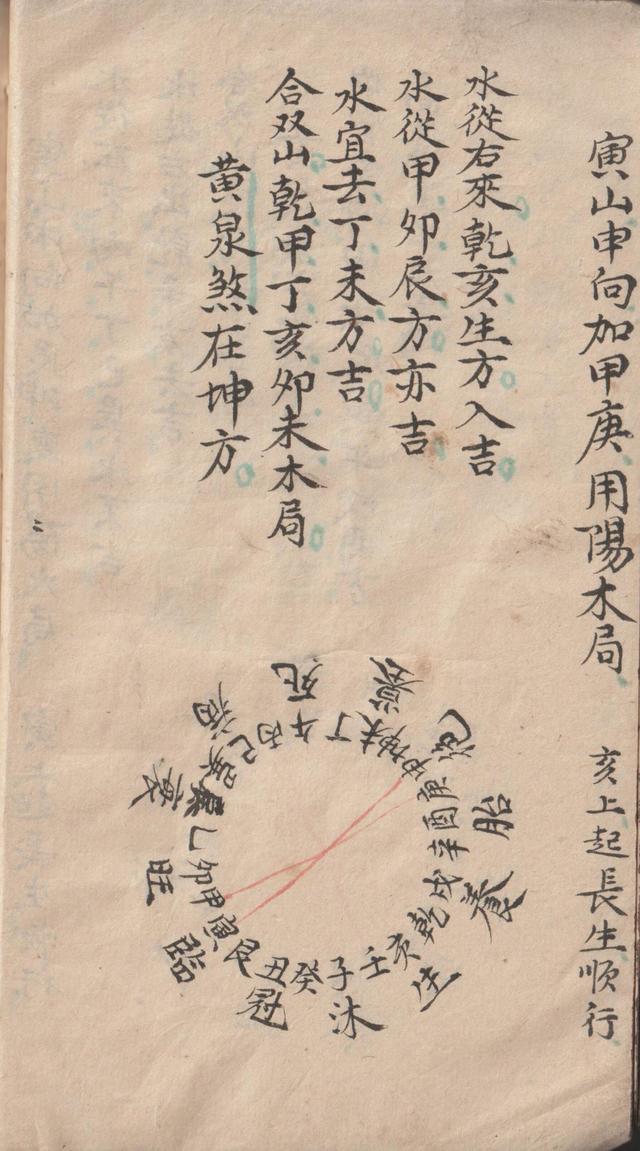 寅山申向加甲庚用陽木局
亥上起長生順行
水從右來乾亥生方入吉
水從甲卯辰方亦吉
水宜去丁未方吉
合双山乾甲丁亥卯未木局
黃泉煞在坤方
壬子癸丑艮寅甲卯乙辰巽巳丙午丁未坤申庚酉辛戌乾亥
生沐冠臨旺衰病死
胎養